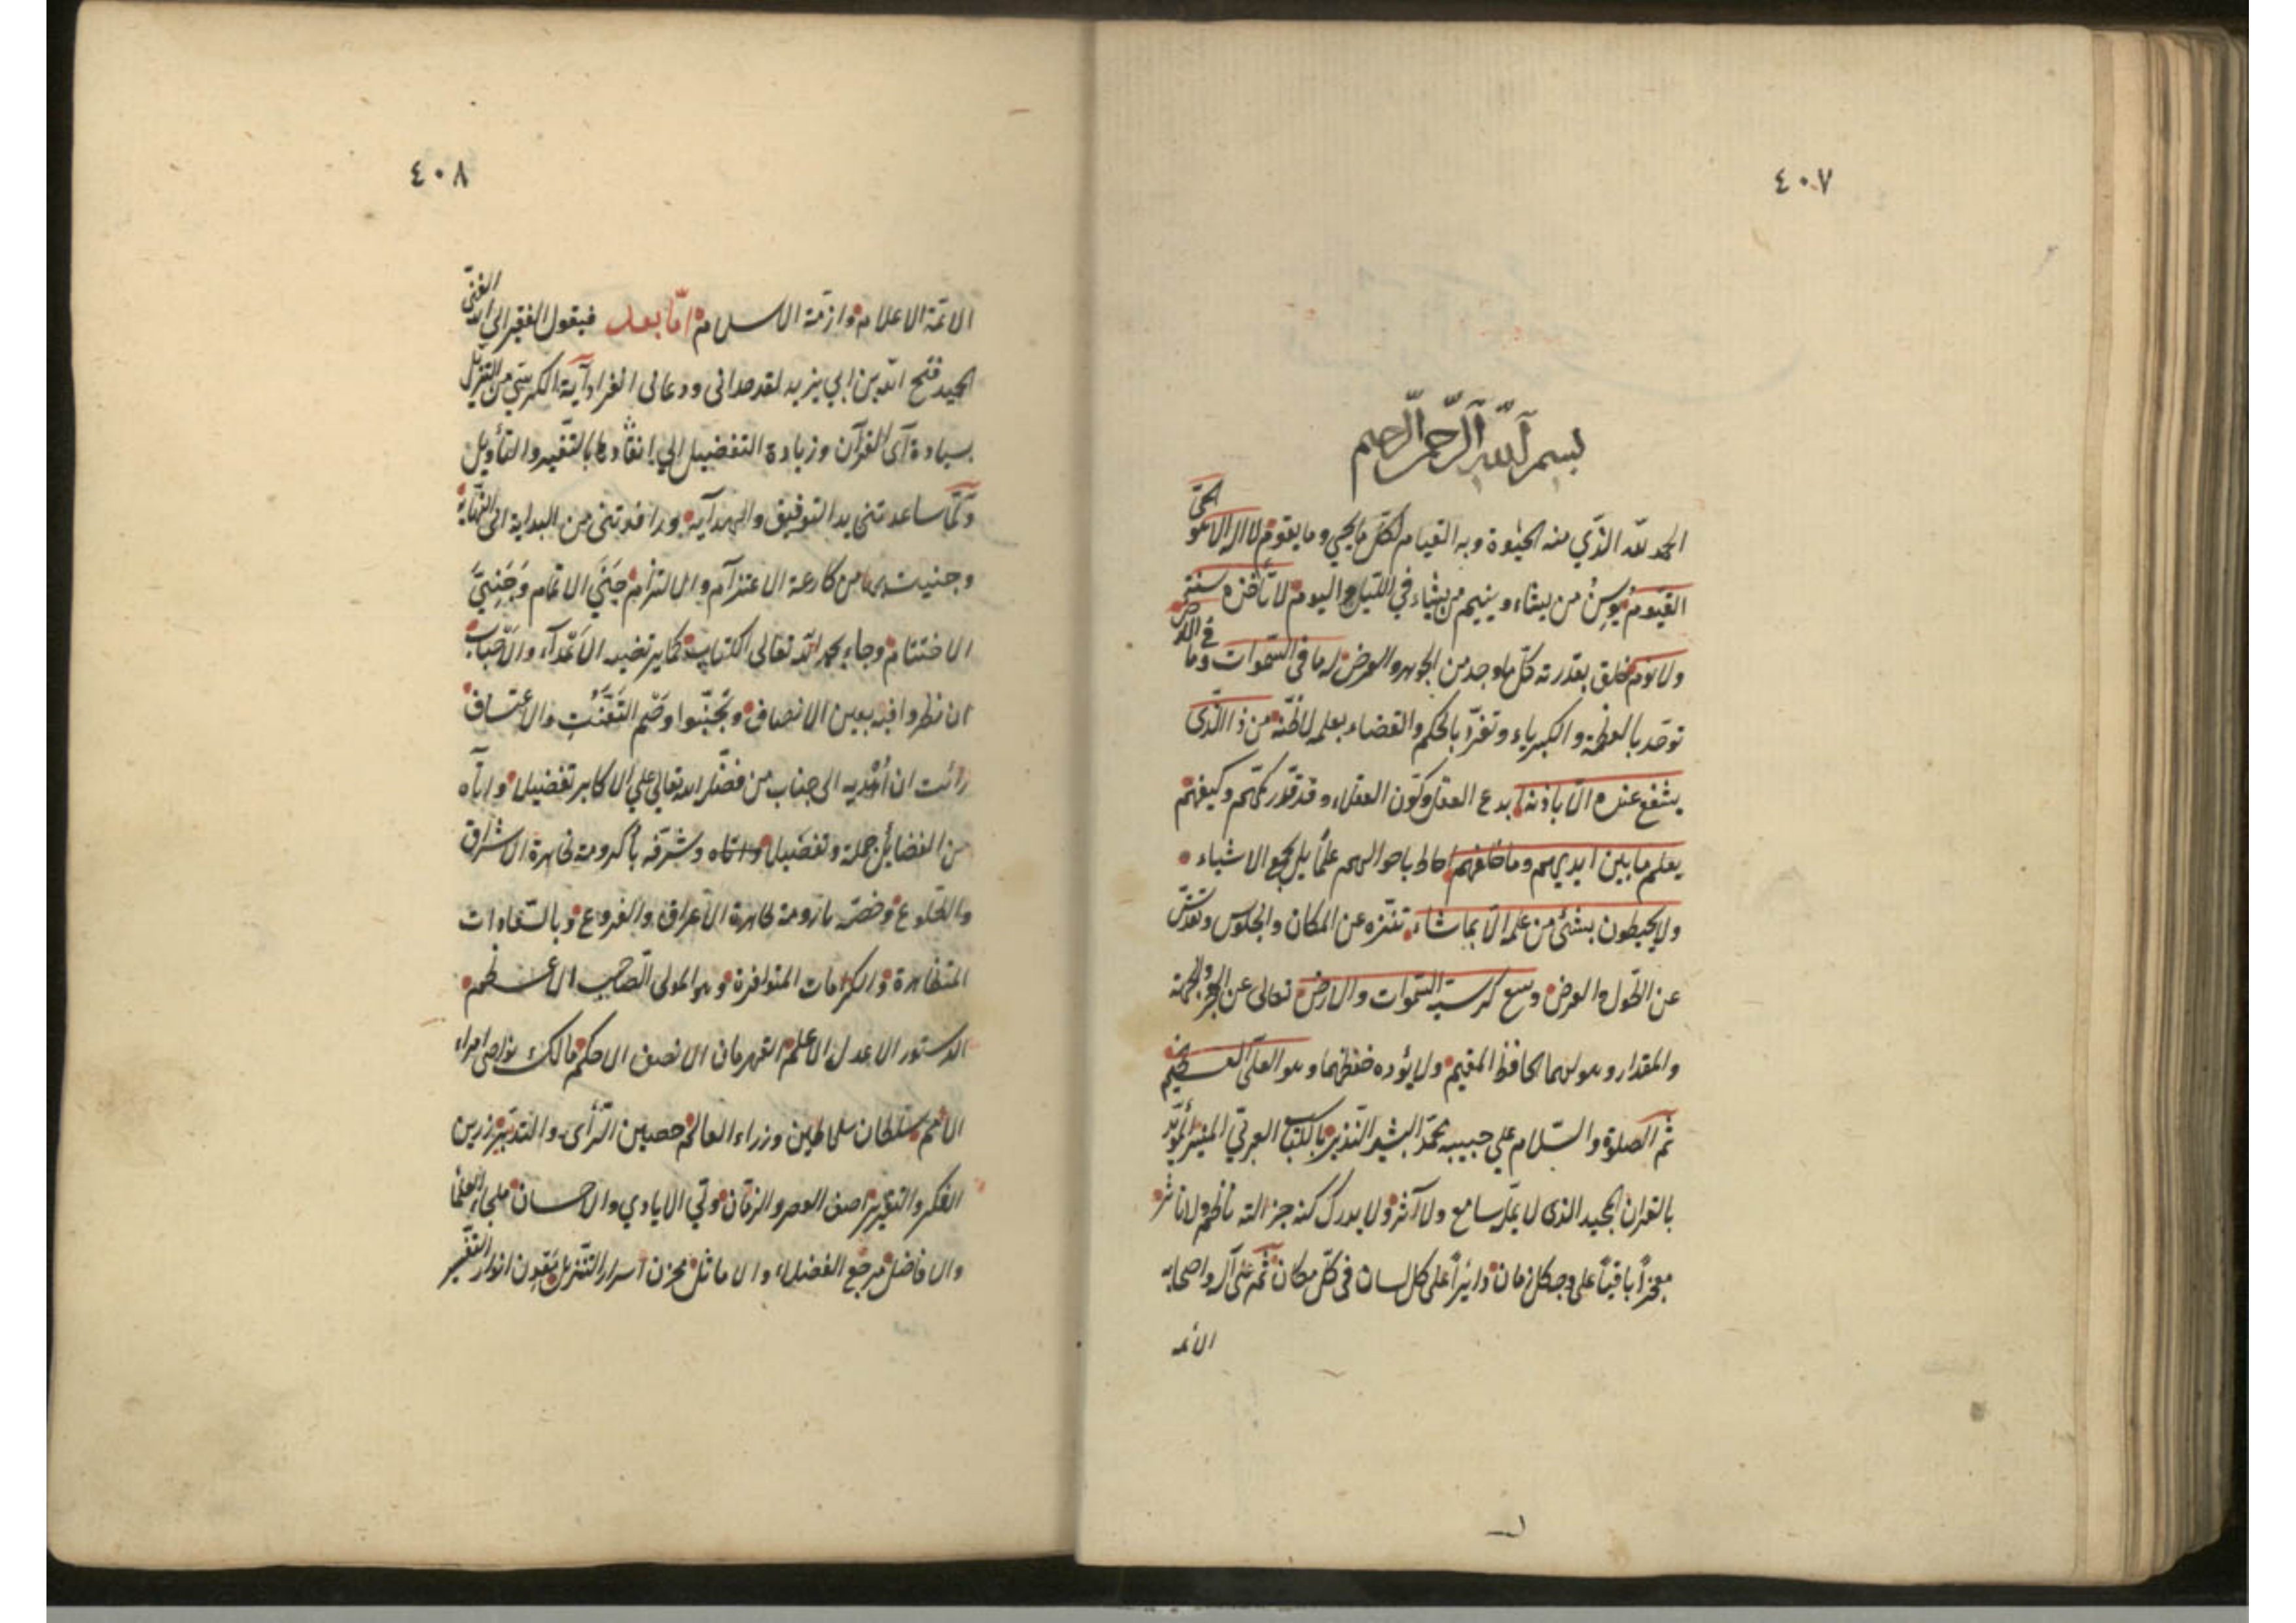 ٤٠٧
بسم الله الرحمن الرحيم
الحمد لله الذي منه الحيوة وبه القيام لكل ما يحيي وما يقوم لا اله الا هو الحي
القيوم يوسن من يشاء وينيم من يشاء في الليل واليوم لا تأخذه سنة
ولا نوم خلق بقدرته كل ما وجد من الجوهر والعرض له ما في السموات وما في الارض
توحد بالعظمة والكبرياء وتفرد بالحكم والقضاء بعلمه من ذا الذي
يشفع عنده الا باذنه ابدع العقل وكون العقلاء وقد قدر كمهم وكيفهم
يعلم ما بين ايديهم وما خلفهم احاط باحوالهم علما بل بجميع الاشياء
ولا يحيطون بشئ من علمه الا بما شاء تنزه عن المكان والجلوس وتقدس
عن الطول والعرض وسع كرسيه السموات والارض تعالى عن الحجم والجهة
والمقدار وهو لهما الحافظ المقيم ولا يؤده حفظهما وهو العلي العظيم
ثم الصلوة والسلام علي حبيبه محمد البشير النذير بالكتاب العربي المنير المؤيد
بالقران المجيد الذى لا يمل سامع ولا آثر ولا يدرك كنه جزالته ناظم ولا ناثر
معجزا باقيا على وجه كل زمان دائرا على كل لسان في كل مكان ثم على آله واصحابه
الائمة
٤٠٨
الائمة الاعلام وازمة الاسلام اما بعد فيقول الفقير الى الله الغني
المجيد فتح الله بن ابي يزيد لقد هداني ودعاني انفراد آية الكرسي من التنزيل
بسيادة آي القرآن وزيادة التفضيل الي افرادها بالتفسير والتأويل
ولما ساعدتني يد التوفيق والهداية ورافدتني من البداية الى النهاية
وجنيت من كارعة الاعتزام والالتزام جني الاتمام وجني
الاختتام وجاء بحمد الله تعالى الكتاب كما يرتضيه الاعداء والاحباب
ان نظروا فيه بعين الانصاف وتجنبوا وصم التعنت والاعتساف
رائت ان أهديه الى جناب من فضله الله تعالي علي الاكابر تفضيلا وآتاه
من الفضائل جملة وتفصيلا وآتاه وشرفه بأكرومة ظاهرة الاشراق
والطلوع وخصه بارومة طاهرة الاعراق والفروع وبالسعادات
المتظاهرة والكرامات المتوافرة وهو المولى الصاحب الاعظم
الدستور الاعدل الاعلم القهرمان الانصف الاحكم مالك نواصى امراء
الامم سلطان سلاطين وزراء العالم حصين الرأى والتدبير رزين
الفكر والتقرير اصف العصر والزمان ولي الايادي والاحسان ملجاء العلماء
والافاضل مرجع الفضلاء والاماثل مخزن اسرار التنزيل انوار التفسير